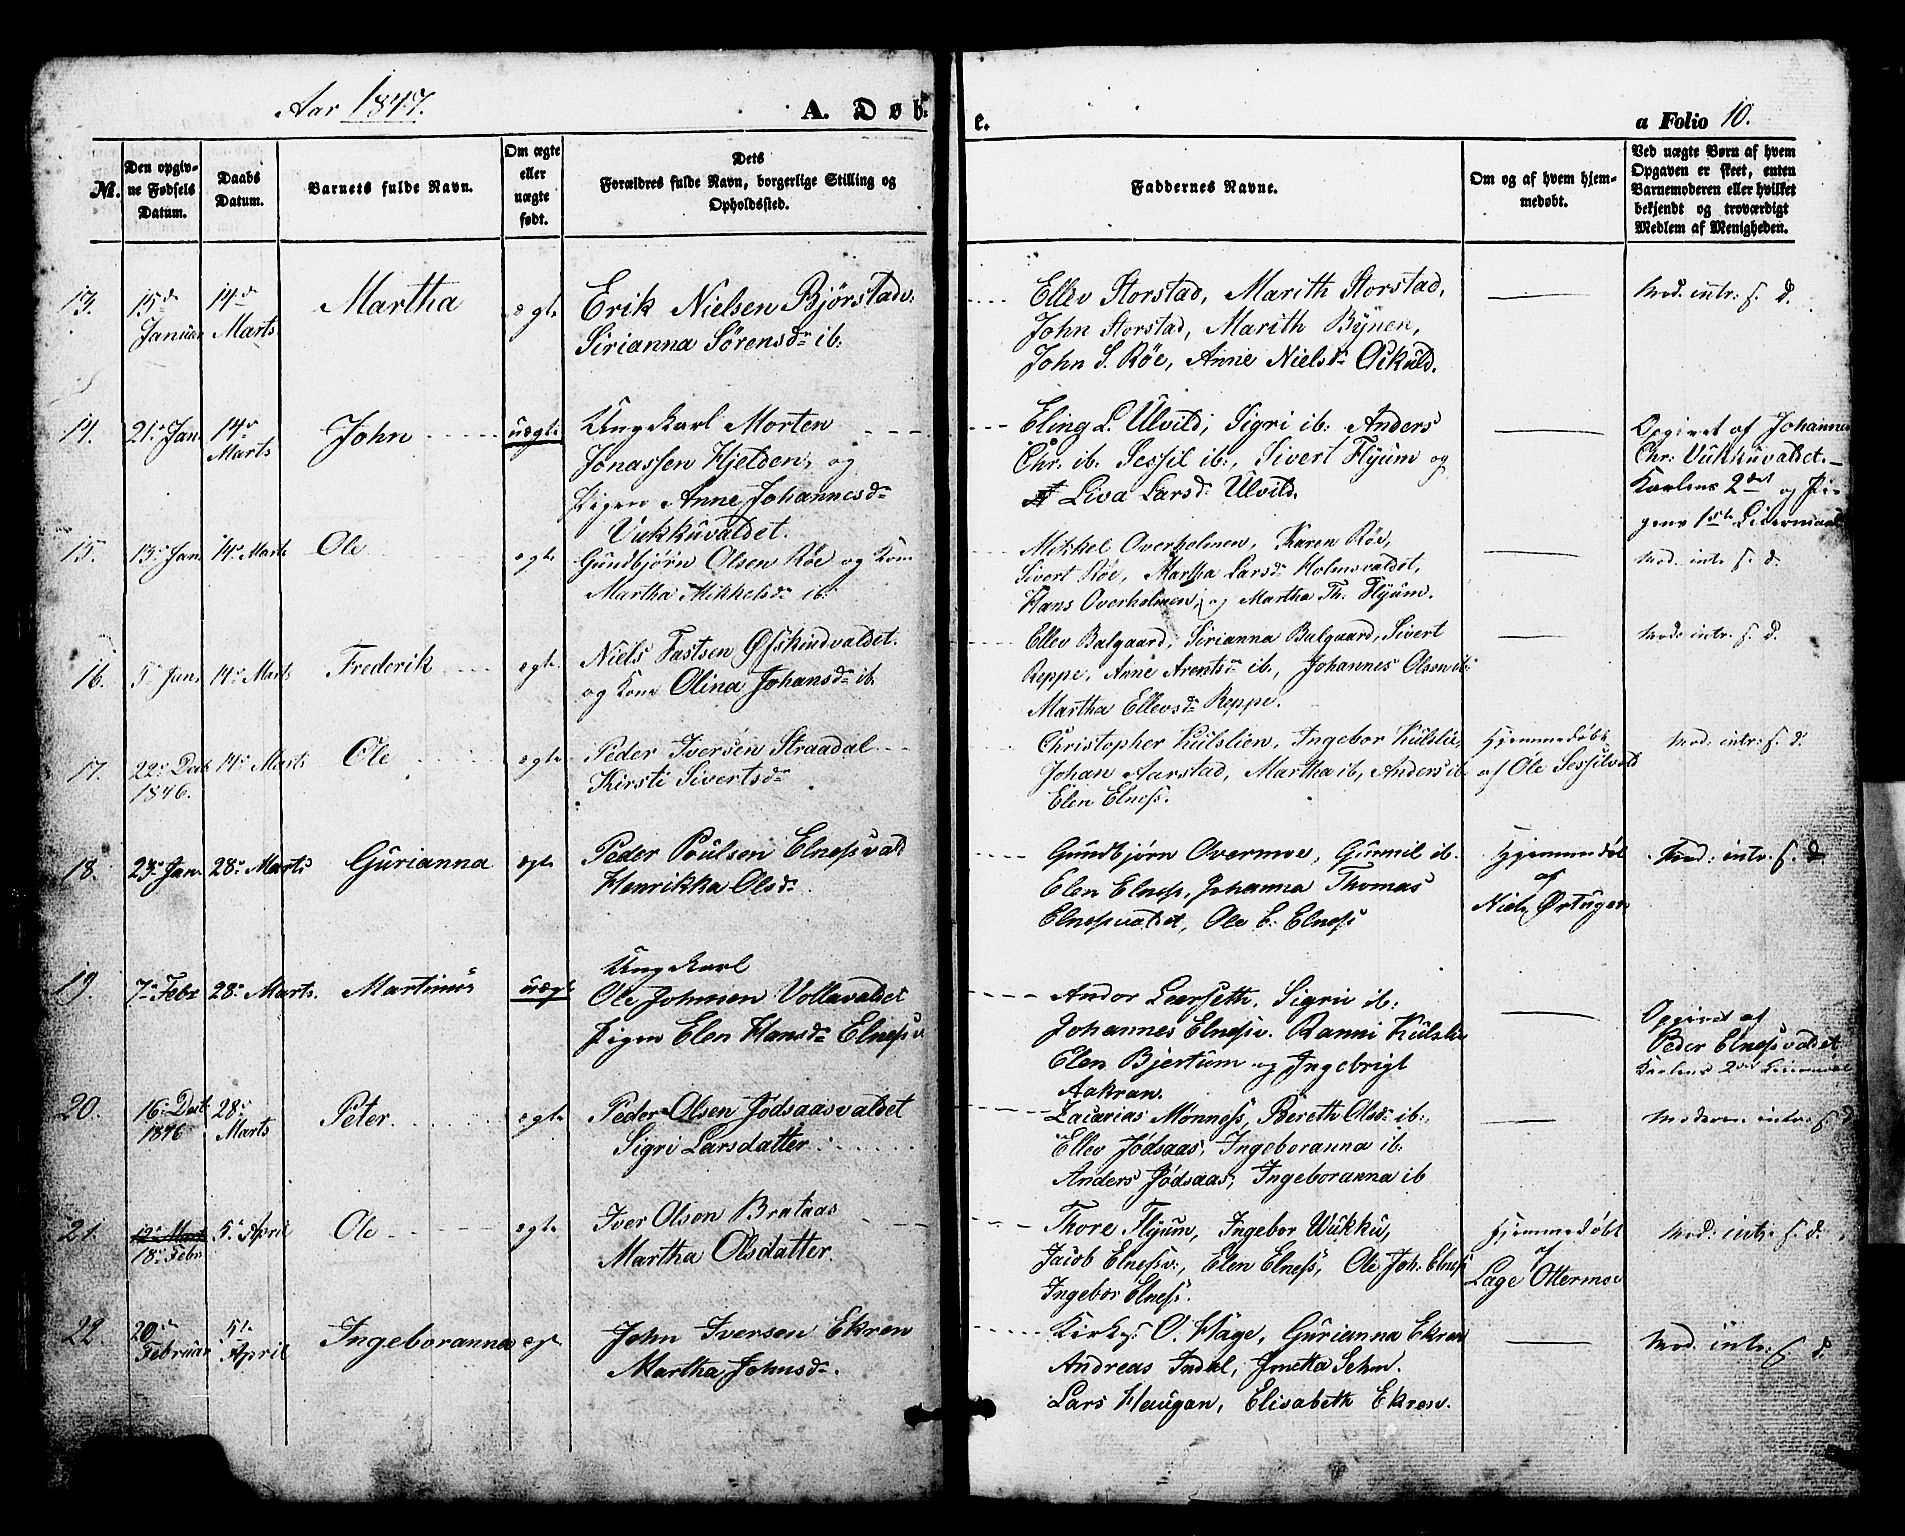 Aar 1847.
A. Døb-
e.
a Folio 10.
№.
Den opgiv-
ne Fødsels
Datum.
Daabs
Datum.
Barnets fulde Navn.
Om ægte
eller
uægte
født.
Dets
Forældres fulde Navn, borgerlige Stilling og
Opholdssted.
Faddernes Navne.
Om og af hvem hjem-
medøbt.
Ved uægte Børn af hvem
Opgaven er skeet, enten
Barnemoderen eller hvilket
bekjendt og troværdigt
Medlem af Menigheden.
13. 15de Januar 14de Marts Martha ægte
Erik Nielsen Bjørstadv:
Sirianna Sørensdr ib:
Ellev Storstad, Marith Storstad,
John Storstad, Marith Bynen,
John S. Røe, Anne Nielsdr
Mod. intr: s. d.
14. 21. Jan. 14. Marts John uægte
Ungkarl Morten
Jonassen Hjelden, og
Pigen Anne Johannesdr
Vukkuvaldet.
Eling L. Ulvild, Sigri ib: Anders
Chr. ib: Sessil ib:, Sivert Flyum og
Liva Larsd: Ulvild.
Opgivet af Johannes
Chr: Vukkuvaldet.
Karlens 2det og Pi-
gens 1ste Leiermaal
15. 13. Jan. 14. Marts Ole ægte
Gundbjørn Olsen Røe og Kone
Martha Mikkelsdr ib:
Mikkel Overholmen, Karen Røe,
Sivert Røe, Martha Larsdr Holmsvaldet,
Hans Overholmen, og Martha Th. Flyum.
Mod. intr. s. d.
16. 5. Jan. 14. Marts Frederik ægte
Niels Fastsen Østkindvaldet.
og Kone Olina Johansdr ib.
Ellev Balgaard, Sirianna Balgaard, Sivert
Reppe, Anne Arentsdr ib., Johannes Olsen ib:
Martha Ellevsdr Reppe.
Mod. intr. s. d.
17. 22. Decb 1846. 14. Marts Ole ægte
Peder Iversen Straadal
Kirsti Sivertsdr
Christopher Kulslien, Ingebor Kulslie,
Johan Aarstad, Martha ib, Anders ib
Elen Elness.
Hjemmedøbt
af Ole Sessilvold
Mod. intr: s. d.
18. 23. Jan. 28. Marts Gurianna ægte
Peder Poulsen Elnessvald
Henrikka Olsdr
Gundbjørn Overmoe, Gunnil ib.
Elen Elness, Johanna Thomas
Elnessvaldet, Ole E. Elness
Hjemmedøbt
af
Niels Ørtugen
Mod: intr. s. d.
19. 7. Febr 28. Marts. Martinus uægte
Ungkarl
Ole Johnsen Vollavaldet
Pigen Elen Hansdr Elnessv
Andor Leerseth, Sigri ib:
Johannes Elnessv. Ranni Kulslie
Elen Bjertum og Ingebrigt
Aakran.
Opgivet af
Peder Elnessvaldet
Karlens 2det Leiermaal
20. 16. Decb 1846 28. Marts Peter. ægte
Peder Olsen Jødsaasvaldet
Sigri Larsdatter
Zacarias Mønness, Bereth Olsdr ib:,
Ellev Jødsaas, Ingeboranna ib.
Anders Jødsaas, Ingeboranna ib
Moderen intr: s. d
21. 12. Marts 18. Febr. 5. April Ole ægte
Iver Olsen Brataas
Martha Olsdatter.
Thore Flyum, Ingebor Wukku,
Jacob Elnessv:, Elen Elness, Ole Joh. Elness
Ingebor Elness.
Hjemmedøbt
af
Lage Ottermoe
Mod: intr. s. d.
22. 20de Februar 5te April Ingeboranna ægte
John Iversen Ekren
Martha Johnsdr.
Kirkes: O. Hage, Gurianna Ekren
Andreas Indal, Jonetta Sehm.
Lars Haugan, Elisabeth Ekren.
Mod. intr: s. d.